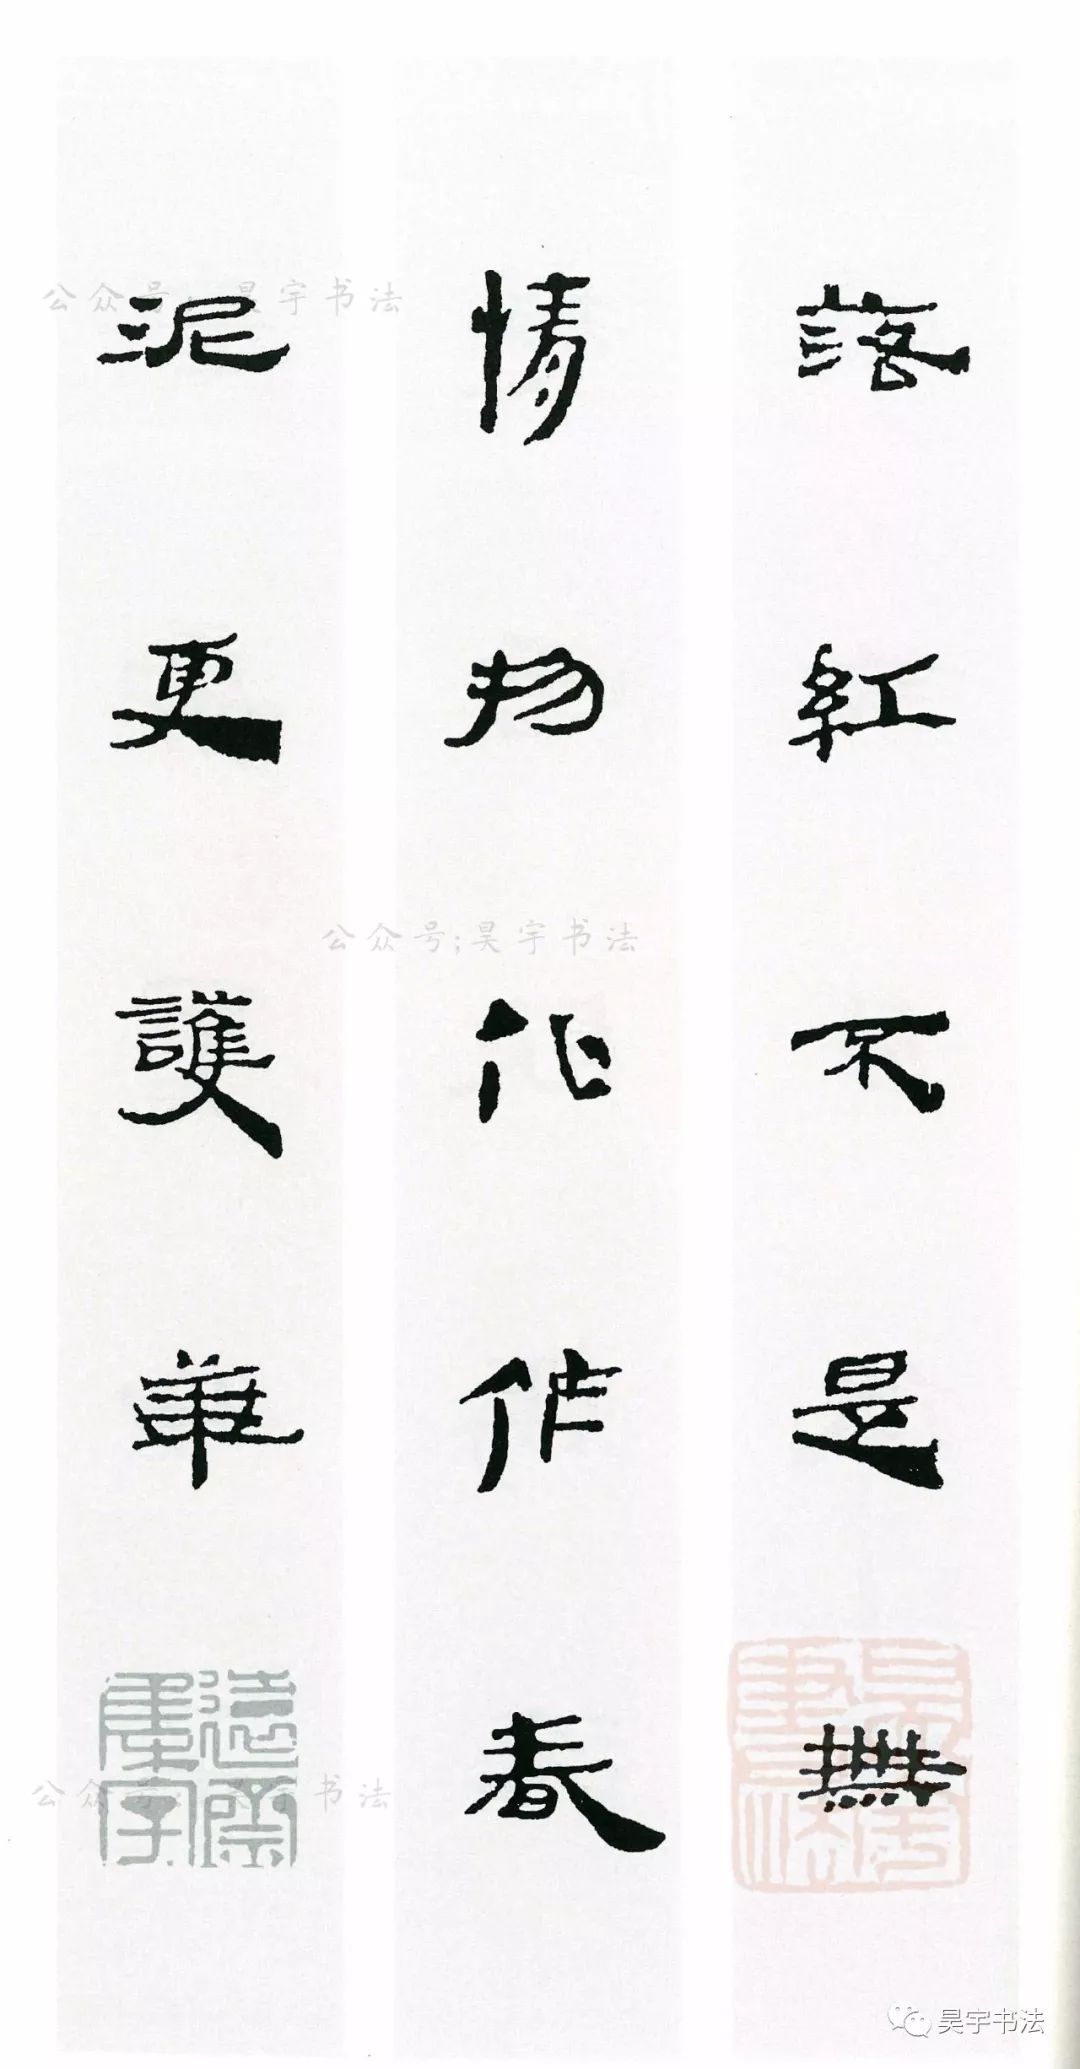 落紅不是無
情物化作春
泥更護華
公众号:昊宇书法
公众号;昊宇书法
公众号:昊宇书法
昊宇书法